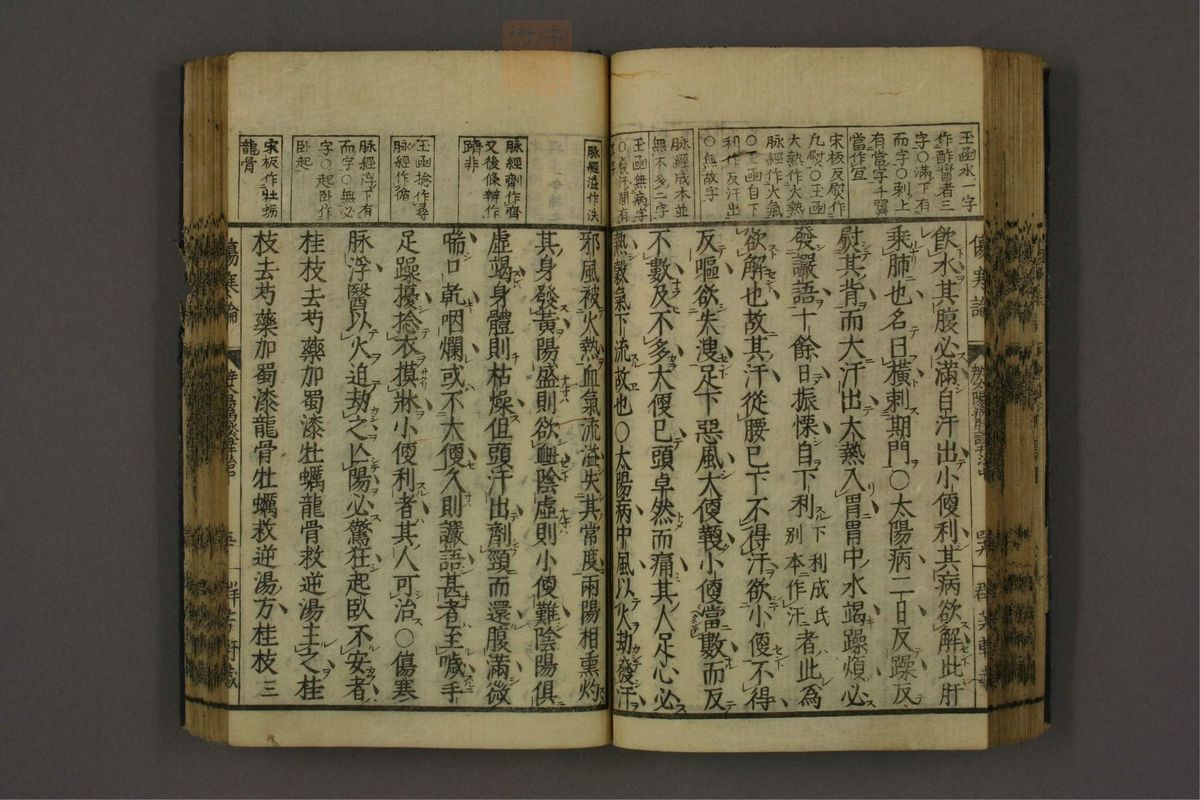 玉函水一字
作酢醤者三
字○滿下有
而字○刺上
有當字千翼
當作宜
宋板反熨作
凡熨○玉函
大熱作火熱
脉經作火氣
○玉函自下
利作反汗出
○無故字
脉經成本並
無不多二字
玉函無病字
○發汗間有
飲水其腹必滿自汗出小便利其病欲解此肝
乘肺也名曰橫刺期門○太陽病二日反躁反
熨其背而大汗出大熱入胃胃中水竭躁煩必
發讝語十餘日振慄自下利下利成氏別本作汗者此為
欲解也故其汗從腰已下不得汗欲小便不得
反嘔欲失溲足下惡風大便鞕小便當數而反
不數及不多大便已頭卓然而痛其人足心必
熱穀氣下流故也○太陽病中風以火劫發汗
傷寒論
脉經溢作泆
脉經劑作齊
又後條辨作
躋非
玉函捻作尋
脉經作循
脉經浮下有
而字○無必
字○起臥作
臥起
宋板作牡蛎
龍骨
邪風被火熱血氣流溢失其常度兩陽相熏灼
其身發黃陽盛則欲衄陰虛則小便難陰陽俱
虛竭身體則枯燥但頭汗出劑頸而還腹滿微
喘口乾咽爛或不大便久則讝語甚者至噦手
足躁擾捻衣摸牀小便利者其人可治○傷寒
脉浮醫以火迫劫之亾陽必驚狂起臥不安者
桂枝去芍藥加蜀漆牡蠣龍骨救逆湯主之桂
枝去芍藥加蜀漆龍骨牡蠣救逆湯方桂枝三
傷寒論